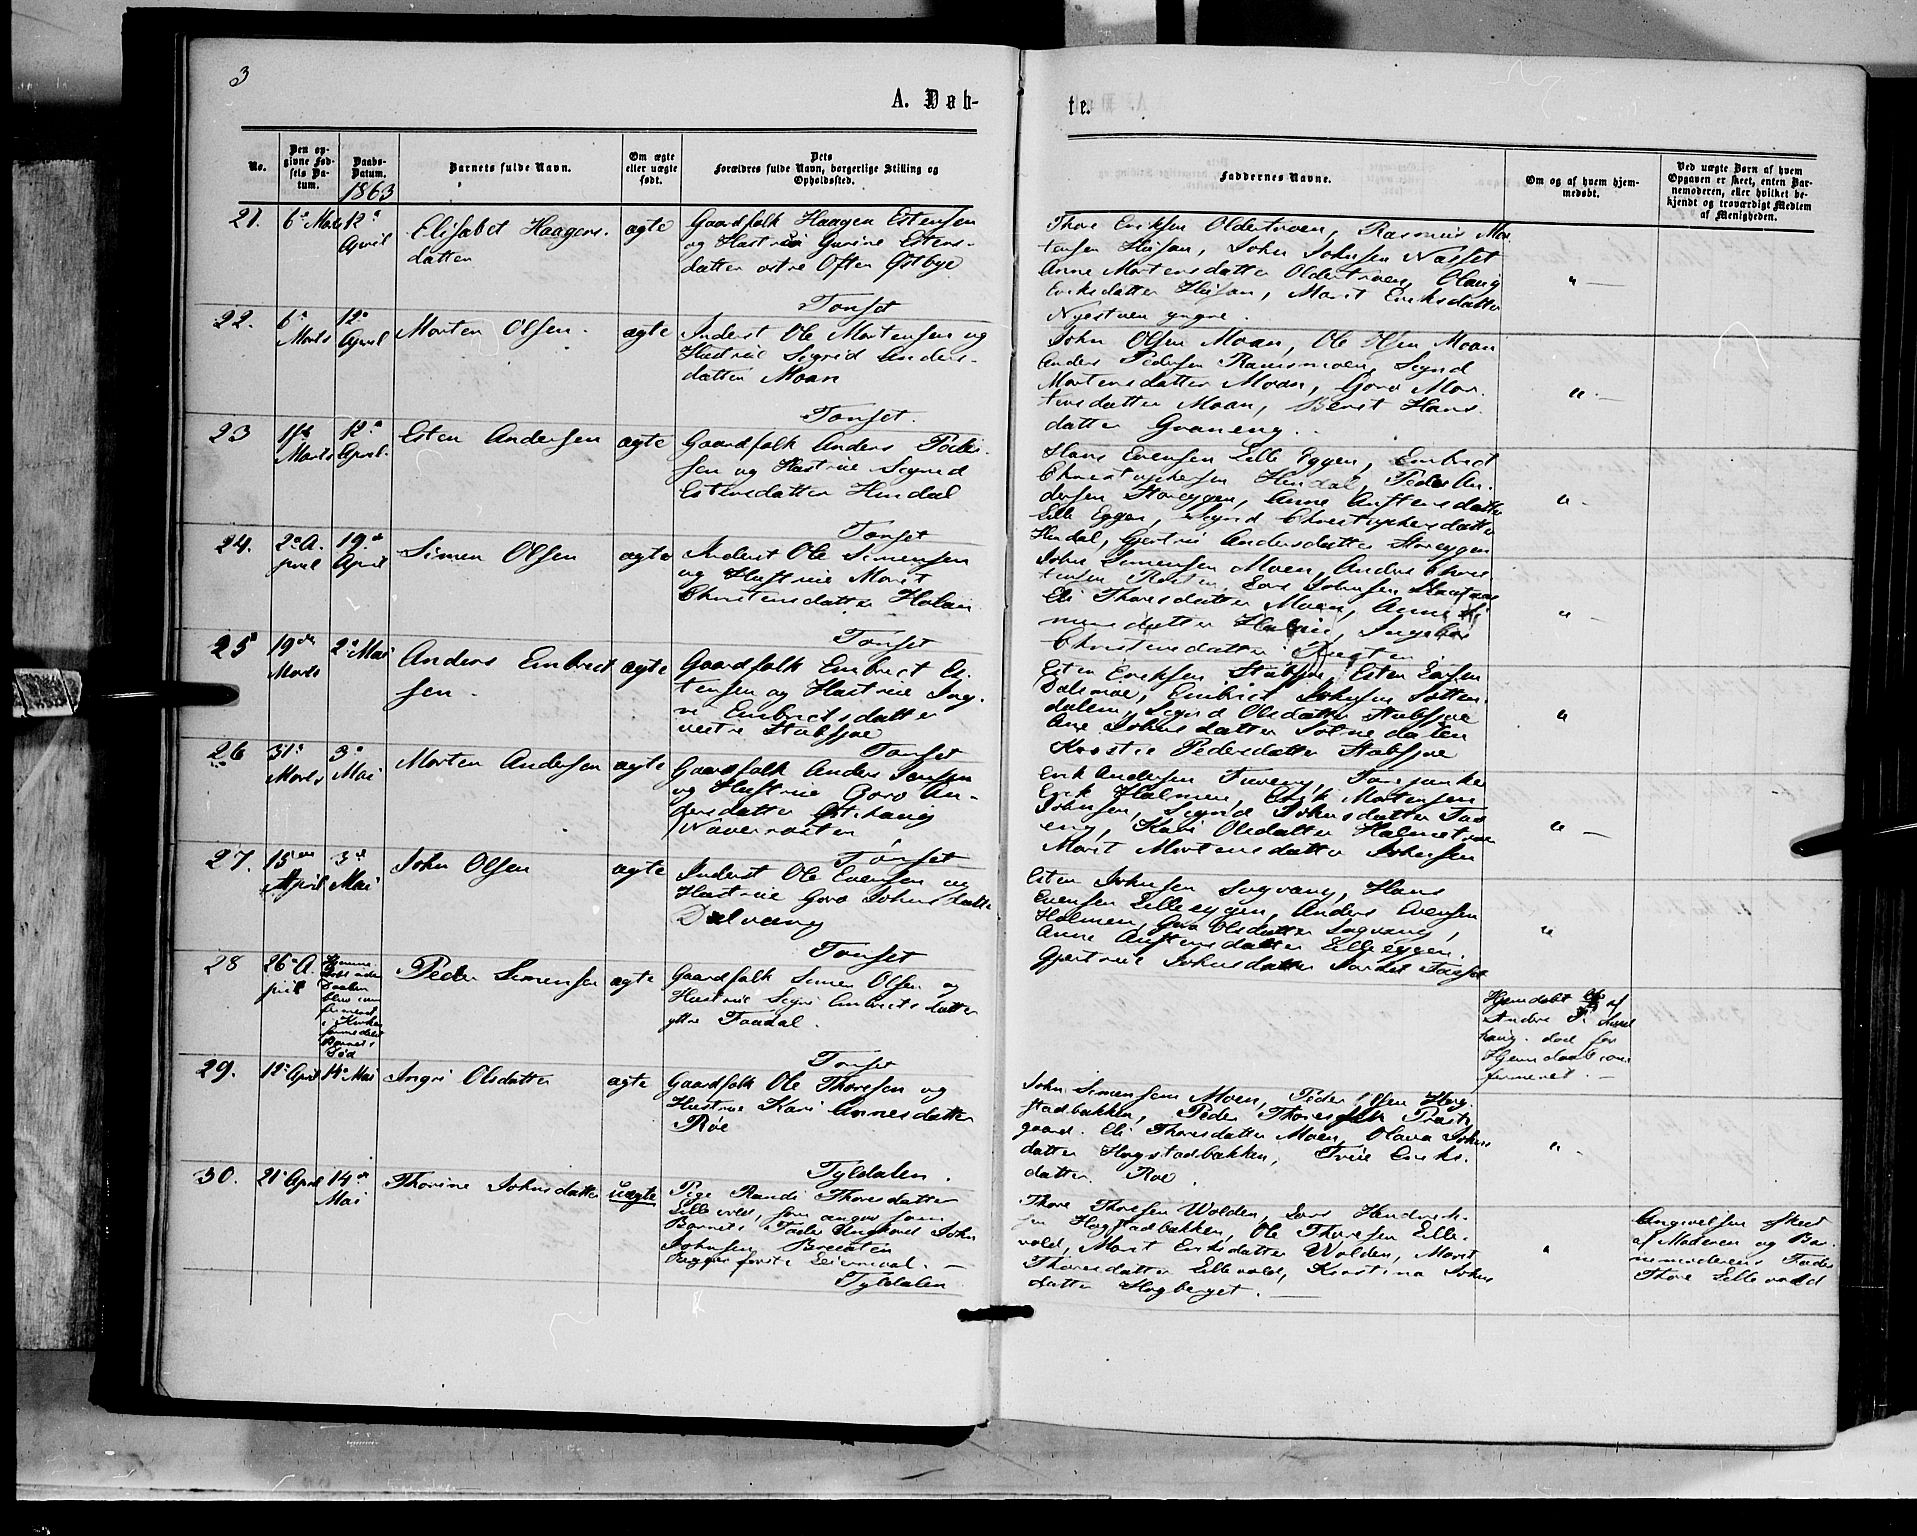 3
A. Døb-
te.
No.
Den op-
givne Fød-
sels Da-
tum.
Daabs-
Datum.
1863
Barnets fulde Navn.
Om ægte
eller uægte
født.
Dets
Forældres fulde Navn, borgerlige Stilling og
Opholdssted.
Faddernes Navne.
Om og af hvem hjem-
medøbt.
Ved uægte Børn af hvem
Opgaven er skeet, enten Bar-
nemoderen, eller hvilket be-
kjendt og troværdigt Medlem
af Menigheden.
21.
6te Marts
12te
April
Elisabet Haagens-
datter
ægte
Gaardfolk Haagen Estensen
og Hustrue Gurine Estens-
datter østre Østbye
Tønset
Thore Eriksen Oldertrøen, Rasmus Mor
tensen, John Johnsen Næsset
Anne Mortensdatter Oldertrøen, Olaug
Eriksdatter, Marit Eriksdatter
Nyestuen yngre.
22.
6te
Marts
12te
April
Morten Olsen.
ægte
Inderst Ole Mortensen og
Hustrue Sigrid Anders-
datter Moan
Tønset.
John Olsen Moan, Ole Moan
Anders Pedersen Ramsmoen, Sigrid
Mortensdatter Moan, Goro Mor
tensdatter Moan, Berit Hans
datter Graneng.
23
Marts
12te
April.
Esten Andersen
ægte
Gaardfolk Anders Peder
sen og Hustrue Sigrid
Estensdatter Hindal
Tønset
Hans Evensen Lille Eggen, Embret
Christophersen Hindal, Peder An
dersen Storeggen, Anne Austensdatter
Lille Eggen, Sigrid Christophersdatter
Hindal, Gjertrue Andersdatter Storeggen
24.
2de A.
pril
19de
April
Simen Olsen
ægte
Inderst Ole Simensen
og Hustrue Marit
Christensdatter
Tønset
John Simensen Moen, Anders Chris
tensen, Lars Johnsen
Eli Thoresdatter Moen, Anne Si
mensdatter, Ingebor
Christensdatter
25
19de
Marts
2den Mai
Anders Embret
sen.
ægte
Gaardfolk Embret Es
tensen og Hustrue Ing
ri Embretsdatter
vestre Stubsjøe
Tønset
Esten Eriksen Stubsjøe, Esten Larsen
Dalsmoe, Embret Johnsen
dalen, Sigrid Olsdatter Stubsjøe
Ane Johnsdatter
Kirstie Pedersdatter Stubsjøe
26
31te
Marts
3de
Mai
Morten Andersen
ægte
Gaardfolk Anders Jonsen
og Hustrue Goro An-
dersdatter Østihaug
Naaverrosten
Tønset
Erik Andersen
Erik Holmen, Erik Mortensen
Johnsen, Sigrid Johnsdatter
eng, Kari Olsdatter Holmetrøe
Marit Mortensdatter Johnsen
27.
15de
April
3de
Mai
John Olsen
ægte
Inderst Ole Evensen og
Hustrue Goro Johnsdatter
Dalvang
Tønset
Esten Johnsen Sagvang, Hans
Evensen Lilleeggen, Anders Evensen
Holmen, Goro Olsdatter Sagvang,
Anne Austensdatter Lilleeggen.
Gjertrue Johnsdatter Jordet Tønset
28
26de A
pril
Hjemme
døbt
Daaben
blev con
firmeret
i Kirken
formedelst
Barnets
Død
Peder Simensen
ægte
Gaardfolk Simen Olsen og
Hustrue Sigri Embretsdatter
yttre Faadal.
Tønset
Hjemdøbt af
Andre
haug. død før
Hjemdaabs con
firmeret.
29.
12te April
14de Mai
Ingri Olsdatter
ægte
Gaardfolk Ole Thoresen og
Hustrue Kari Annesdatter
Røe
Tyldalen.
John Simensen Moen, Peder Olsen Hog
stadbakken, Peder Thoresen Præste
gaard. Eli Thoresdatter Moen, Olava Johns
datter Hogstadbakken, Eriks
datter Røe.
30.
21de April
14de
Mai
Thorine Johnsdatter
uægte
Pige Randi Thoresdatter
Lillevold, som angav som
Barnets Fader Ungkarl John
Johnsen Breiøien
Begges første Leiermaal.
Tyldalen
Thore Thoresen Wolden, Lars Hendrik-
sen Hogstadbakken, Ole Thoresen Lille
vold, Marit Eriksdatter Wolden, Marit
Thoresdatter Lillevold, Kirstina Johns
datter Hogberget.
Angivelsen skeet
af Moderen og Bar
nemoderens Fader
Thore Lillevold